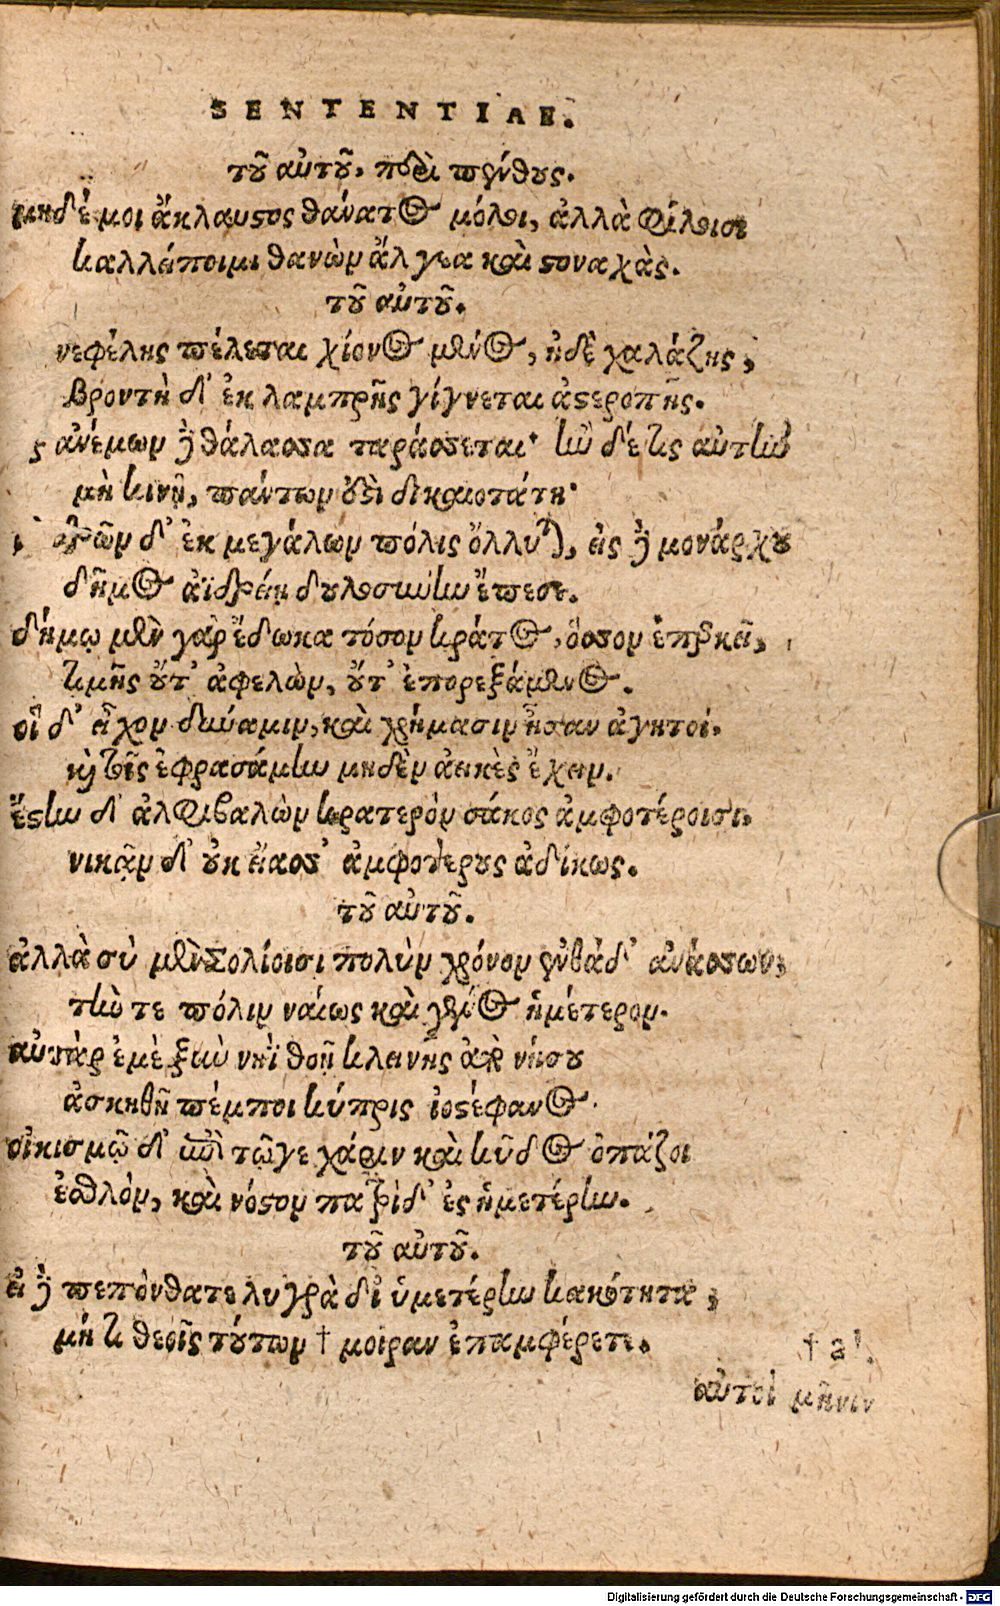 SENTENTIAE.
τοῦ αὐτοῦ, περὶ πένθους.
μηδέ μοι ἄκλαυστος θάνατος μόλοι, ἀλλὰ φίλοισι
καλλείποιμι θανὼν ἄλγεα καὶ στοναχάς.
τοῦ αὐτοῦ.
νεφέλης πέλεται χίονος μένος, ἠδὲ χαλάζης,
βροντὴ δ' ἐκ λαμπρῆς γίγνεται ἀστεροπῆς.
ς ἀνέμων δὲ θάλασσα ταράσσεται· ἢν δέ τις αὐτὴν
μὴ κινῇ, πάντων οὐσὶ δικαιοτάτη·
ἀνδρῶν δ' ἐκ μεγάλων πόλις ὄλλυται, εἰς δὲ μονάρχου
δῆμος ἀϊδρείη δουλοσύνην ἔπεσε.
δήμῳ μὲν γὰρ ἔδωκα τόσον κράτος, ὅσσον ἐπαρκεῖ,
τιμῆς οὔτ' ἀφελὼν, οὔτ' ἐπορεξάμενος.
οἳ δ' εἶχον δύναμιν, καὶ χρήμασιν ἦσαν ἀγητοί.
καὶ τοῖς ἐφρασάμην μηδὲν ἀεικὲς ἔχειν.
ἔστην δ' ἀμφιβαλὼν κρατερὸν σάκος ἀμφοτέροισι,
νικᾷν δ' οὐκ εἴασ' ἀμφοτέρους ἀδίκως.
τοῦ αὐτοῦ.
ἀλλὰ σὺ μὲν Σολίοισι πολὺν χρόνον ἐνθάδ' ἀνάσσων,
τήν τε πόλιν ναίοις καὶ γένος ἡμέτερον.
αὐτὰρ ἐμὲ ξὺν νηῒ θοῇ κλεινῆς ἀπὸ νήσου
ἀσκηθῆ πέμποι κύπρις ἰοστέφανος.
οἰκισμῷ δ' ἐπὶ τῷγε χάριν καὶ κῦδος ὀπάζοι
ἐσθλὸν, καὶ νόστον πατρίδ' ἐς ἡμετέρην.
τοῦ αὐτοῦ.
εἰ δὲ πεπόνθατε λυγρὰ δι' ὑμετέρην κακότητα,
μή τι θεοῖς τούτων † μοῖραν ἐπαμφέρετε.
† al.
αὐτοὶ μῆνιν
Digitalisierung gefördert durch die Deutsche Forschungsgemeinschaft - DFG